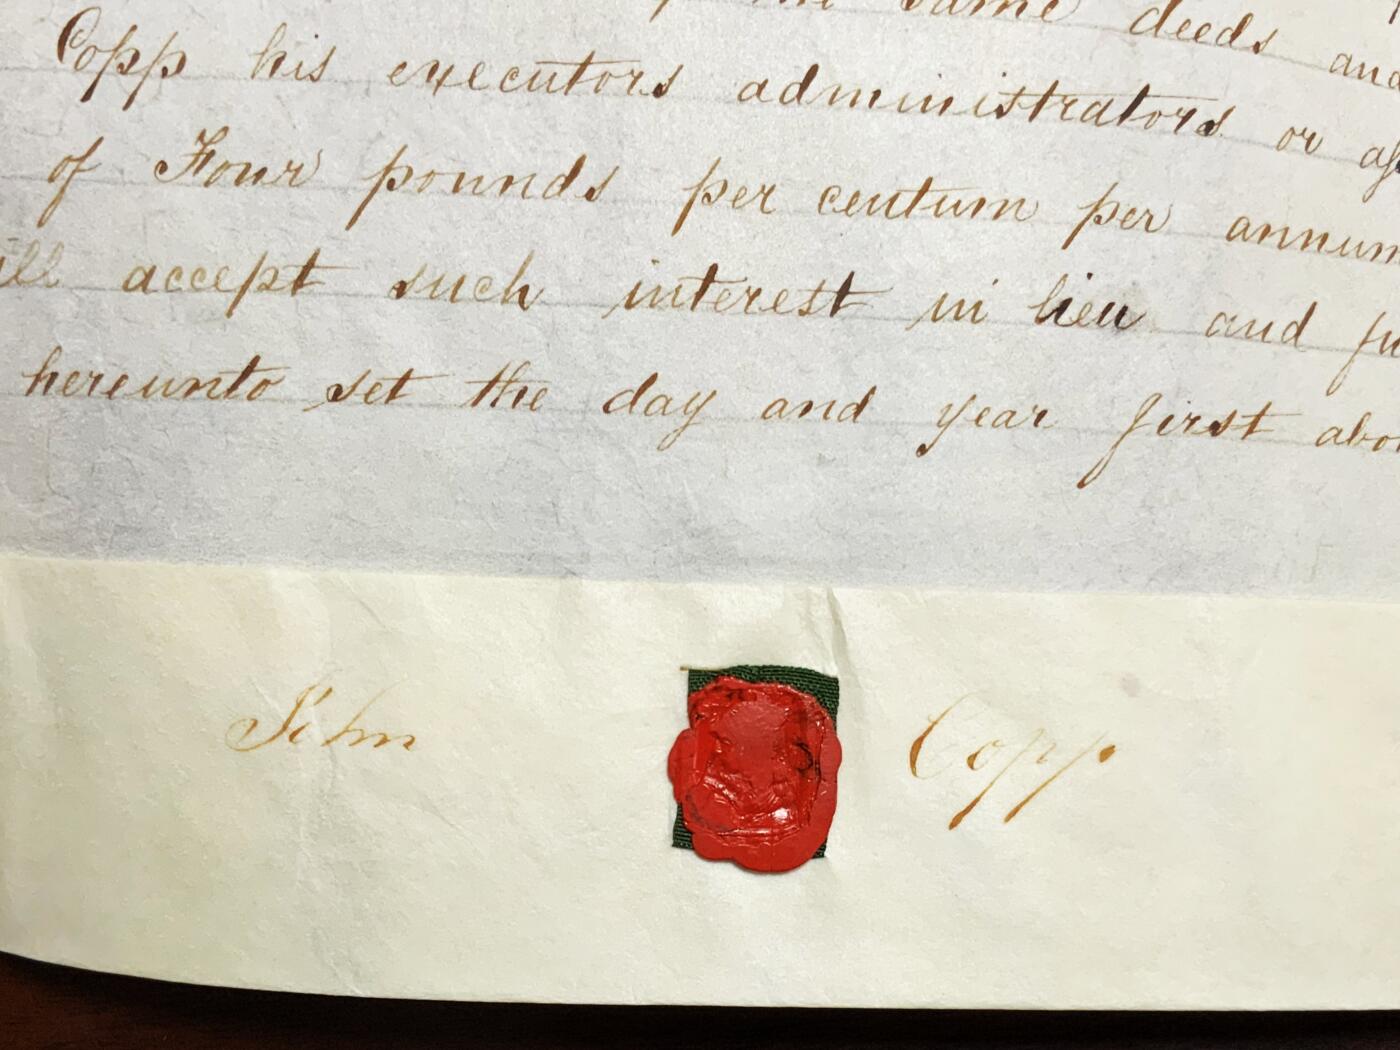 the same deeds and
Copp his executors administrators or
of Four pounds per centum per annum
accept such interest in lieu and
hereunto set the day and year first
John Copp